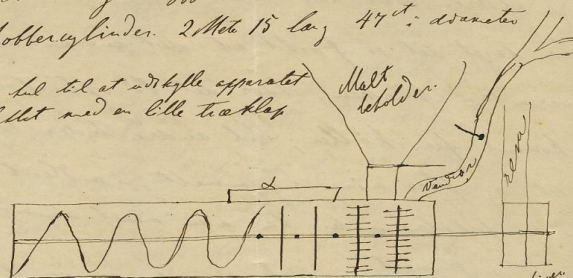 obbercylinder. 2 Mete 15 lang 47 ct i diameter
hul til at udskylle apparatet
med en lille træklap
Malt
beholder.
Vandrør
rem
α